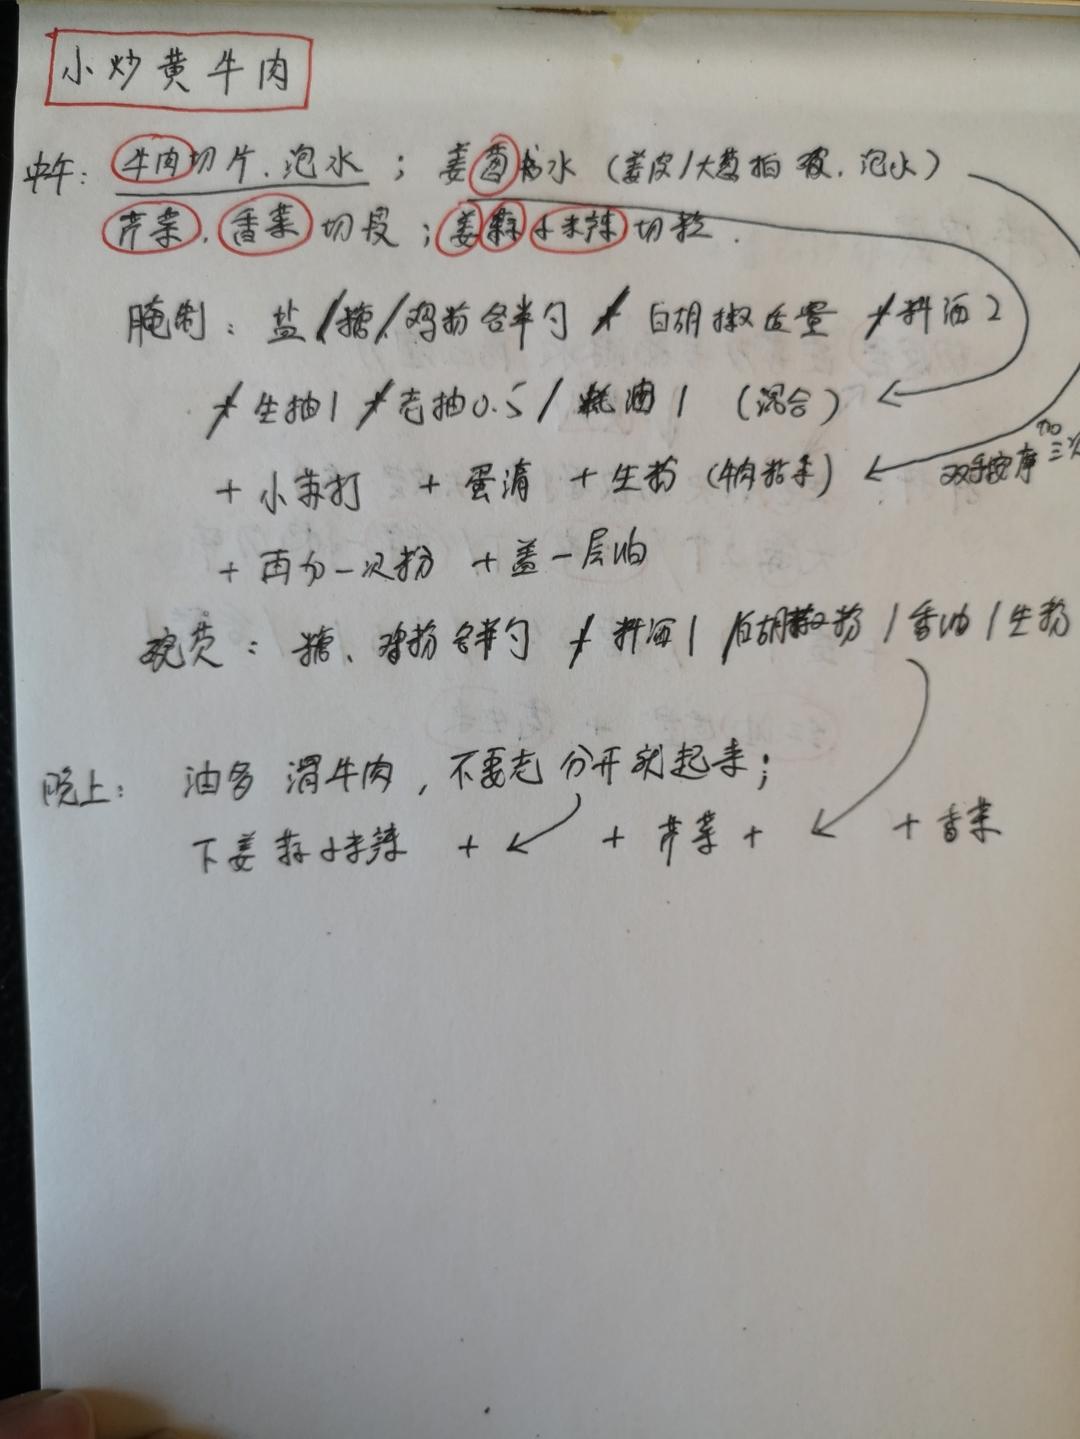 小炒黄牛肉
中午：牛肉切片、泡水；姜葱水（姜皮/大葱拍，泡水）
芹菜、香菜切段；姜蒜小米辣切粒.
腌制：盐/糖/鸡粉各半勺 / 白胡椒适量 / 料酒2
/ 生抽1 / 老抽0.5 / 耗油1 （混合）
+ 小苏打 + 蛋清 + 生粉（牛肉粘手） 双手按摩 加三次
+ 再加一次粉 + 盖一层油
碗芡：糖、鸡粉各半勺 / 料酒1 / 白胡椒粉 / 香油 / 生粉
晚上：油多 滑牛肉，不要老 分开就起来；
下姜蒜小米辣 + + 芹菜 + + 香菜